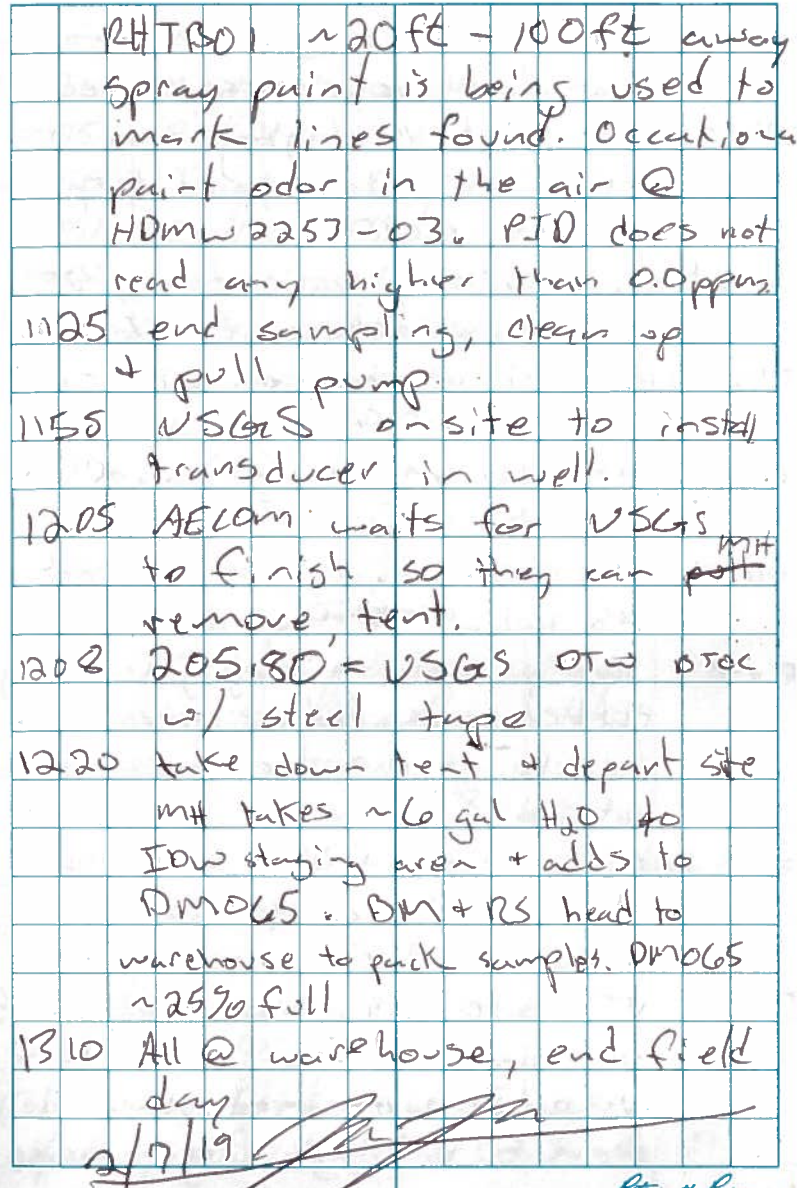 RHTB01 ~20ft - 100ft away
spray paint is being used to
mark lines found. Occationa
paint odor in the air @
HDMW2253-03. PID does not
read any higher than 0.0ppm.
1125 end sampling, clean up
+ pull pump.
1155 USGS onsite to install
transducer in well.
1205 AECOM waits for USGS
to finish so they can pull MH
remove tent.
1208 205.80' = USGS DTW BTOC
w/ steel tape
1220 take down tent + depart site
MH takes ~6 gal H2O to
IDW staging area + adds to
DM065. BM + RS head to
warehouse to pack samples. DM065
~25% full
1310 All @ warehouse, end field
day
2/7/19